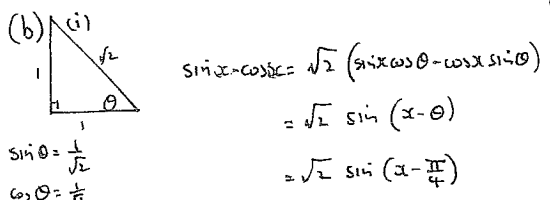 (b) (i)
√2
1
θ
1
sin θ = 1/√2
cos θ = 1/√
sin x - cos x = √2 (sin x cos θ - cos x sin θ)
= √2 sin (x - θ)
= √2 sin (x - π/4)